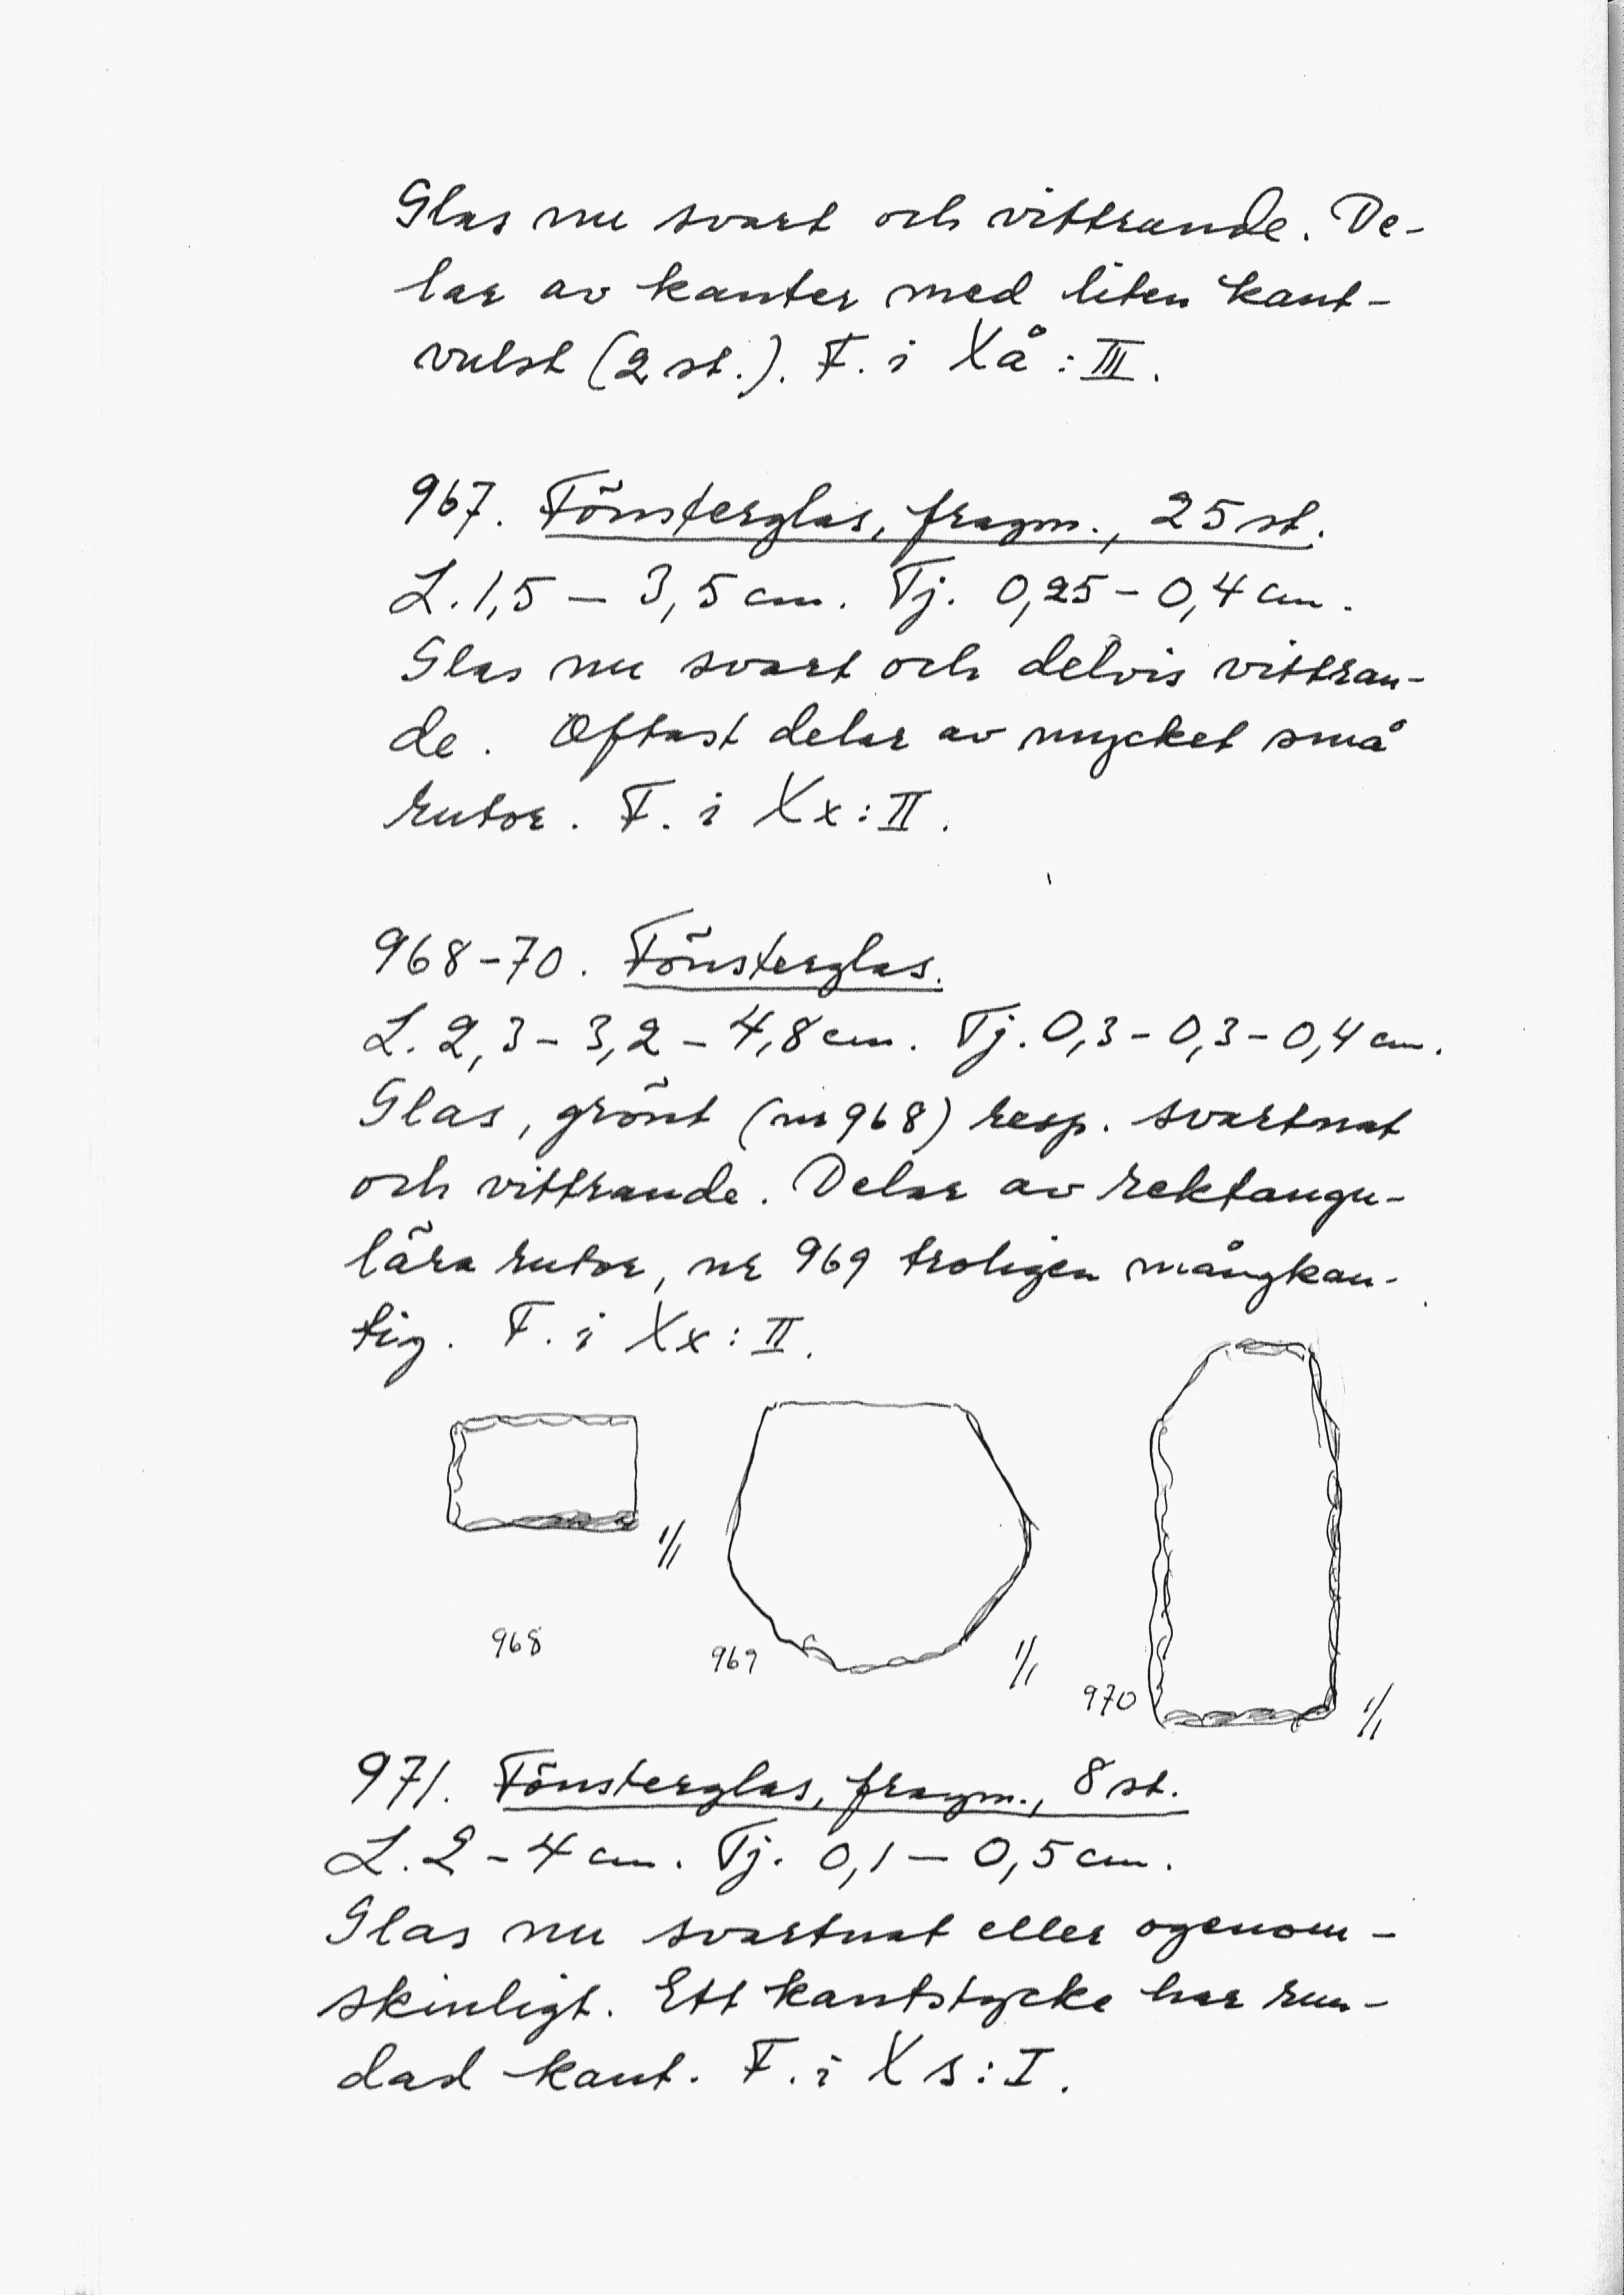 Glas nu svart och vittrande. De-
lar av kanter med liten kant-
vulst (2 st.). F. i Xå : III.
967. Fönsterglas, fragm., 25 st.
L. 1,5 – 3,5 cm. Tj. 0,25 – 0,4 cm.
Glas nu svart och delvis vittran-
de. Oftast delar av mycket små
rutor. F. i Xx : II.
968-70. Fönsterglas.
L. 2,3 – 3,2 – 4,8 cm. Tj. 0,3 – 0,3 – 0,4 cm.
Glas, grönt (nr 968) resp. svartnat
och vittrande. Delar av rektangu-
lära rutor, nr 969 troligen mångkan-
tig. F. i Xx : II.
1/1
968
969
1/1
970
1/1
971. Fönsterglas, fragm., 8 st.
L. 2 – 4 cm. Tj. 0,1 – 0,5 cm.
Glas nu svartnat eller ogenom-
skinligt. Ett kantstycke har run-
dad kant. F. i Xs : I.